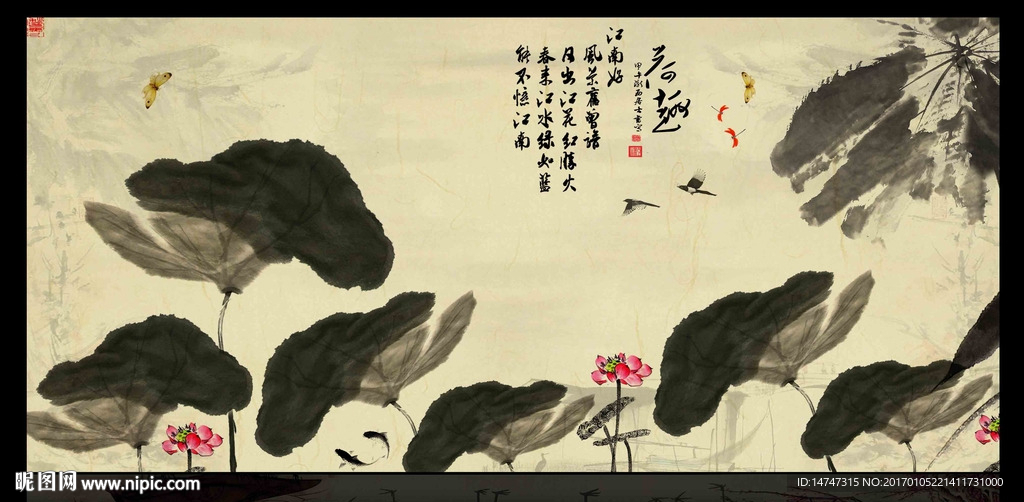 荷趣
江南好
風景舊曾諳
日出江花红勝火
春来江水绿如蓝
能不憶江南
昵图网 www.nipic.com
ID:14747315 NO:20170105221411731000